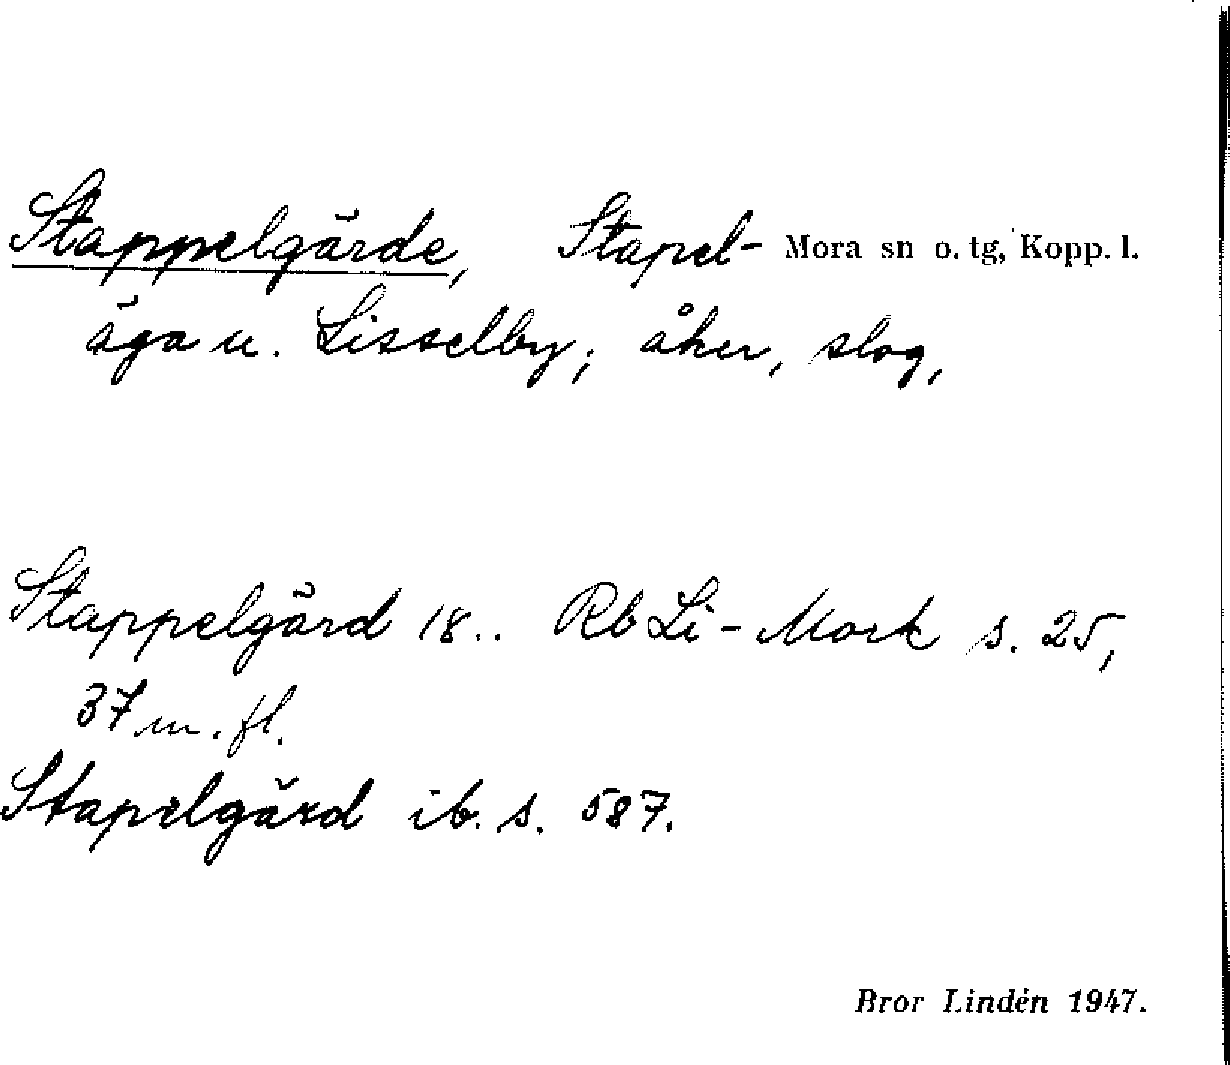 Stappelgärde, Stapel- Mora sn o. tg, Kopp. l.
äga u. Lisselby; åker, slog,
Stappelgärd 18.. Rb Li-Mork s. 25,
37 m. fl.
Stapelgärd ib. s. 587.
Bror Lindén 1947.